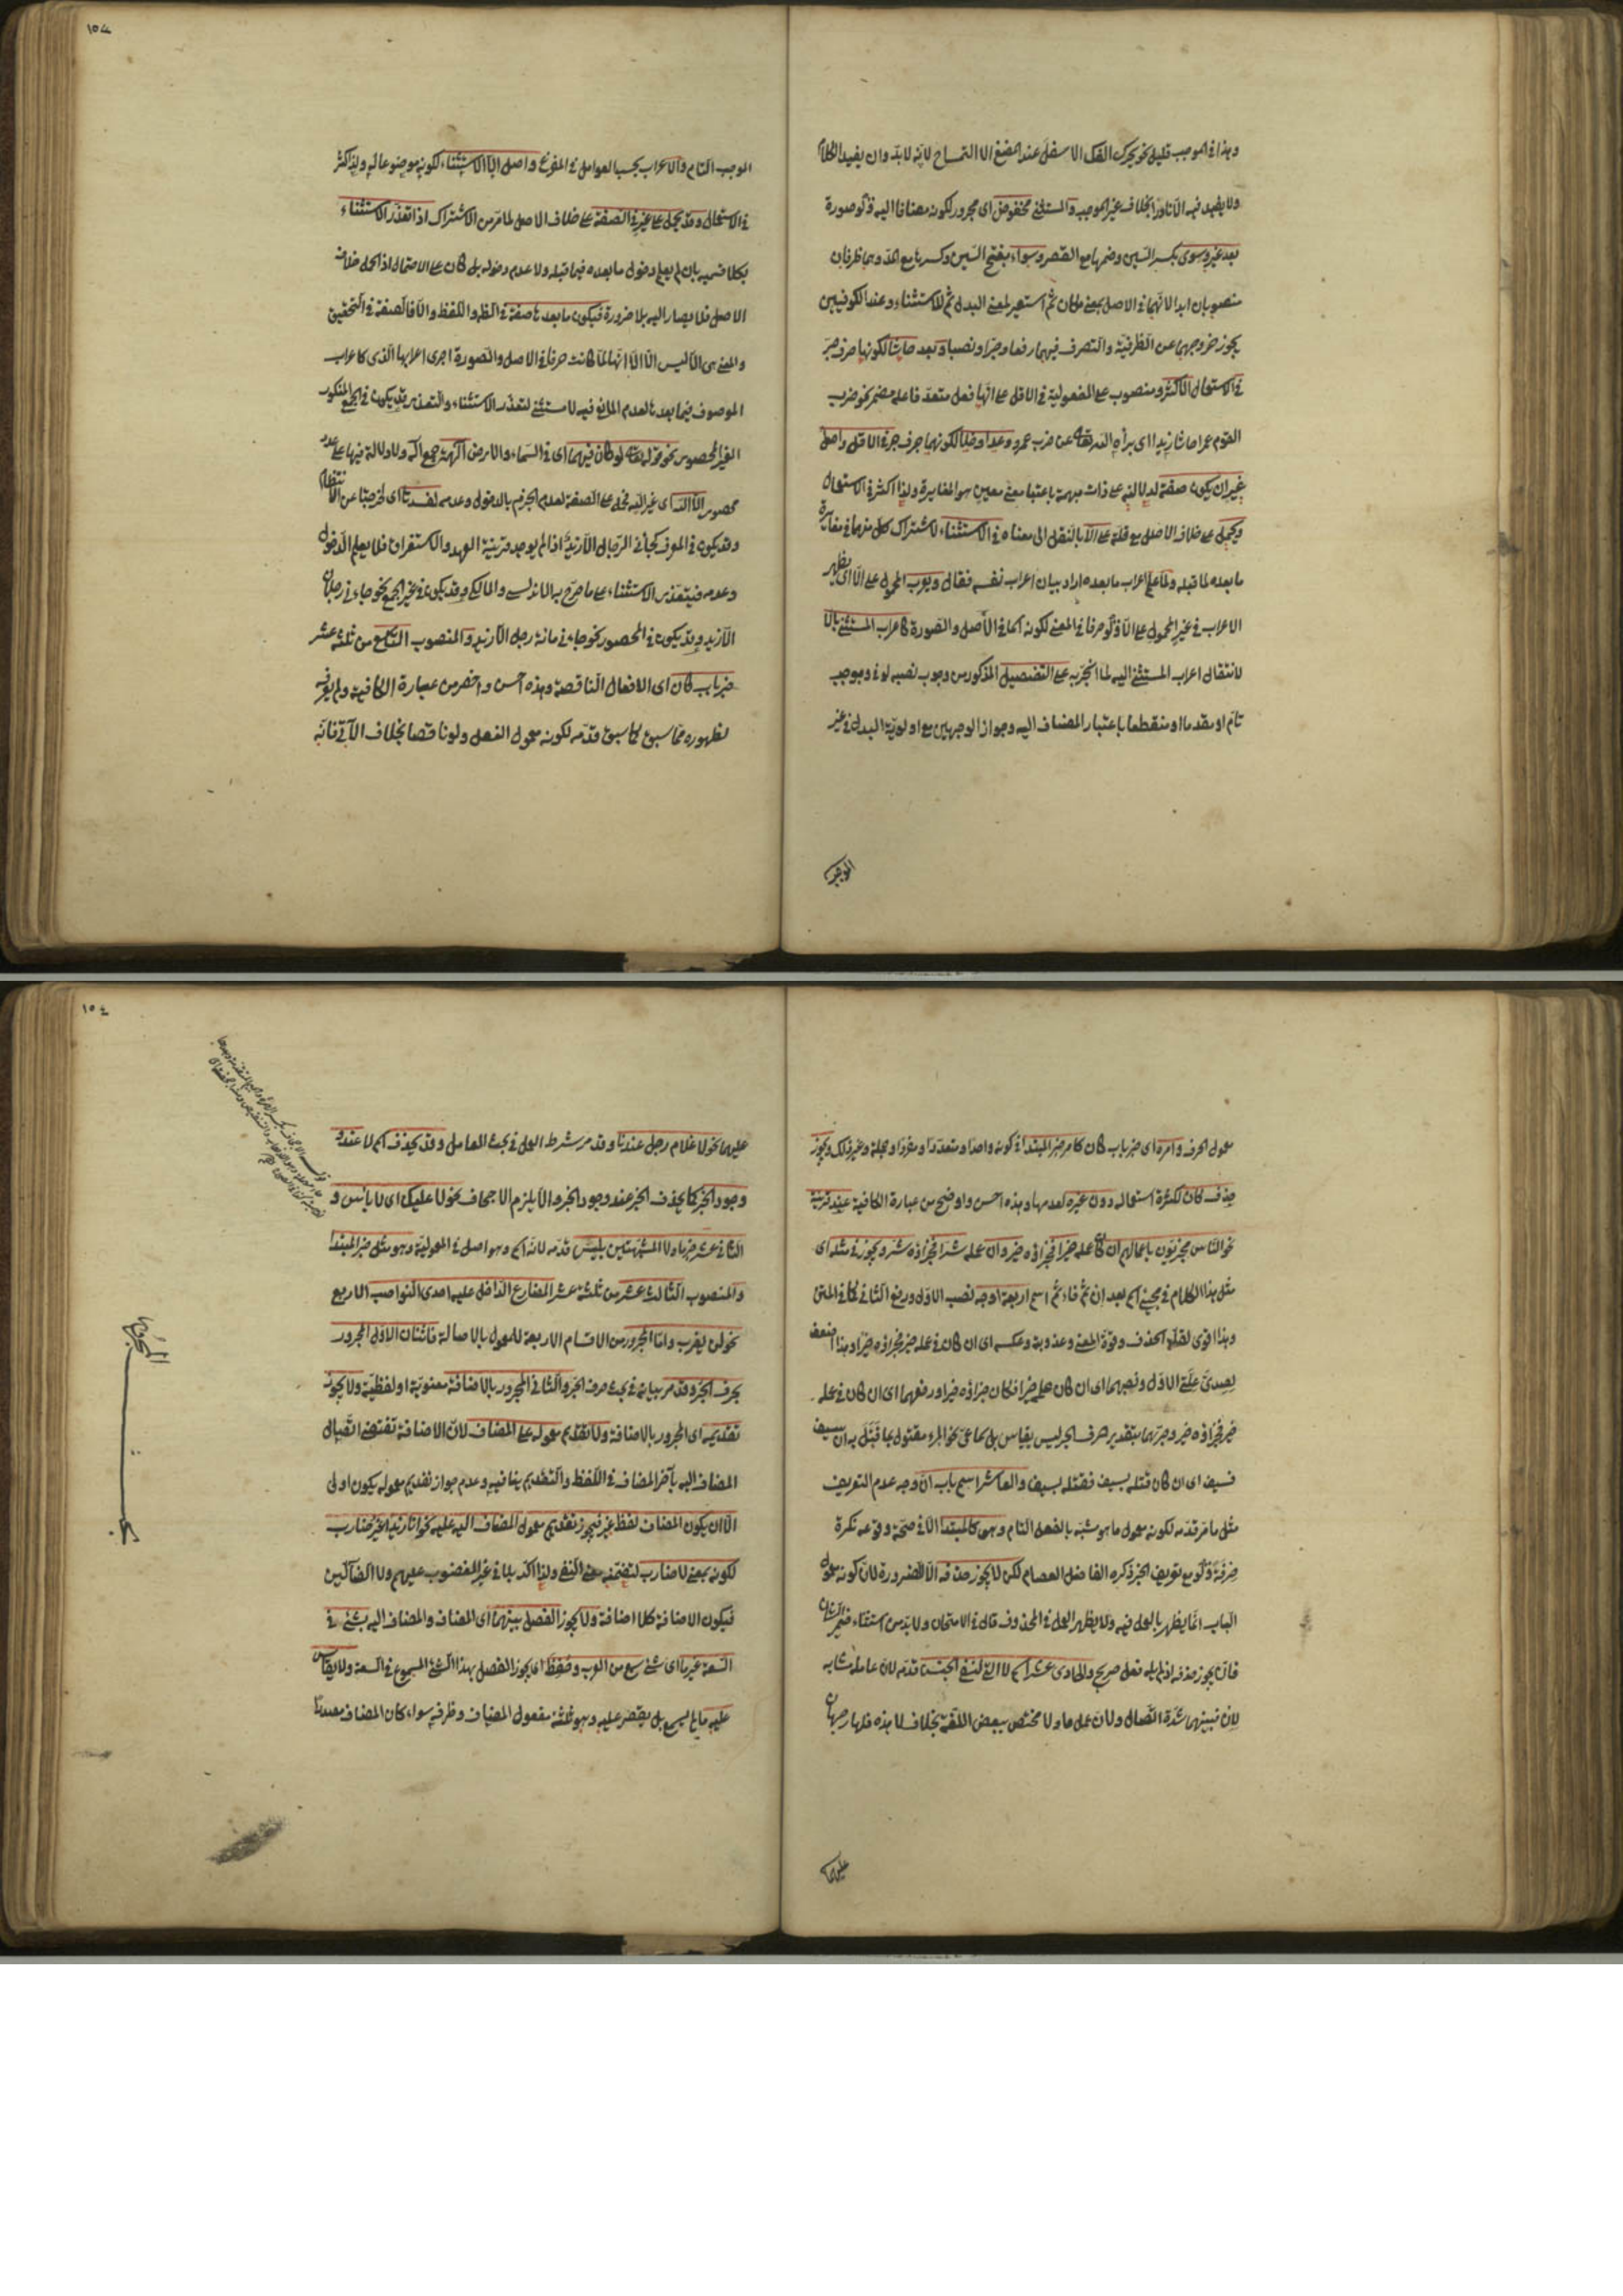 وهذا في الموجب قليل نحو يحرك الفك الاسفل عند المضغ الا التمساح لانه لا بد وان يفيد الكلام
ولا يفيد فيه الا نادرا بخلاف غير الموجب والمستثنى مخفوض اى مجرور لكونه مضافا اليه ولو صورة
بعد غير وسوى بكسر السين وضمها مع القصر وسواء بفتح السين وكسرها مع المد وهما ظرفان
منصوبان ابدا لانهما في الاصل بمعنى مكان ثم استعير لمعنى البدل ثم للاستثناء وعند الكوفيين
يجوز خروجهما عن الظرفية والتصرف فيهما رفعا وجرا ونصبا وبعد حاشا لكونها حرف جر
في الاستعمال الاكثر ومنصوب على المفعولية في الاقل على انها فعل متعد فاعله مضمر نحو ضرب
القوم عمرا حاشا زيدا اى برأه الله تعالى عن ضرب عمرو وعدا وخلا لكونهما حرف جر في الاقل واصل
غير ان يكون صفة لدلالته على ذات مبهمة باعتبار معنى معين هو المغايرة ولذا اكثر في الاستعمال
ويحمل على خلاف الاصل مع قلة على الا بالنقل الى معناه في الاستثناء لاشتراك كل منهما في مغايرة
ما بعده لما قبله ولما علم اعراب ما بعده اراد بيان اعراب نفسه فقال واعرب المحمول على الا اى يظهر
الاعراب في غير المحمول على الا ولو حرفا في المعنى لكونه اسما في الاصل والصورة كاعراب المستثنى بالا
لانتقال اعراب المستثنى اليه لما انجر به على التفصيل المذكور من وجوب نصبه لو في موجب
تام او مقدما او منقطعا باعتبار المضاف اليه وجواز الوجهين مع اولوية البدل في غير
الموجب
١٥٤
الموجب التام والاعراب بحسب العوامل في المفرغ واصل الا الاستثناء لكونه موضوعا له ولذا كثر
في الاستعمال وقد يحمل على غير في الصفة على خلاف الاصل لما مر من الاشتراك اذا تعذر الاستثناء
بكلا قسميه بان لم يعلم دخول ما بعده فيما قبله ولا عدم دخوله بل كان على الاحتمال اذ الحمل خلاف
الاصل فلا يصار اليه بلا ضرورة فيكون ما بعدها صفة في الظاهر واللفظ والا فالصفة في التحقيق
والمعنى هى الا ليس الا الا انها لما كانت حرفا في الاصل والصورة اجرى اعرابها الذى كاعراب
الموصوف فيما بعدها لعدم المانع فيه لا مستثنى لتعذر الاستثناء والتعذر قد يكون في الجمع المنكور
الغير المحصور نحو قوله تعالى لو كان فيهما اى في السماء والارض آلهة جمع اله ولا دلالة فيها على عدد
محصور الا الله اى غير الله فحمل على الصفة لعدم الجزم بالدخول وعدمه لفسدتا اى لخرجتا عن الانتظام
وقد يكون في المعرف كجائنى الرجال الا زيد اذا لم يوجد قرينة العهد والاستغراق فلا يعلم الدخول
وعدمه فيتعذر الاستثناء على ما صرح به الاندلسى والمالكى وقد يكون في غير الجمع نحو جاءنى رجلان
الا زيد وقد يكون في المحصور نحو جاءنى مائة رجل الا زيد والمنصوب التاسع من ثلثة عشر
خبر باب كان اى الافعال الناقصة وهذه احسن واخصر من عبارة الكافية ولم يعرفه
لظهوره مما سبق كما سبق قدمه لكونه معمول الفعل ولو ناقصا بخلاف الآتى فانه
معمول الحرف وامره اى خبر باب كان كامر خبر المبتدا في كونه واحدا ومتعددا ومفردا وجملة وغير ذلك ويجوز
حذف كان لكثرة استعماله دون غيره لعدمها وهذه احسن واوضح من عبارة الكافية عند قرينة
نحو الناس مجزيون باعمالهم ان كان عمله خيرا فجزاؤه خير وان عمله شرا فجزاؤه شر ويجوز في مثله اى
مثل هذا الكلام في مجيئ اسم بعد ان ثم فاء ثم اسم اربعة اوجه نصب الاول ورفع الثاني كما في المتن
وهذا اقوى لقلة الحذف وقوة المعنى وعذوبة وعكسه اى ان كان في عمله خير فجزاؤه خيرا وهذا اضعف
لصدق علة الاول ونصبهما اى ان كان عمله خيرا فكان جزاؤه خيرا ورفعهما اى ان كان في عمله
خير فجزاؤه خير وجرهما بتقدير حرف الجر ليس بقياس بل سماعى نحو المرء مقتول بما قتل به ان سيف
فسيف اى ان كان قتله بسيف فقتله بسيف والعاشر اسم باب ان وجه عدم التعريف
مثل ما مر قدمه لكونه معمول ما هو مشبه بالفعل التام وهى كالمبتدا الا في صحة وقوعه نكرة
صرفة ولو مع تعريف الخبر ذكره الفاضل العصام لكن لا يجوز حذفه الا للضرورة لان كونه معمول
الباب انما يظهر بالعمل فيه ولا يظهر العمل في المحذوف قال في الامتحان ولا بد من استثناء ضمير الشان
فانه يجوز حذفه اذ لم يله فعل صريح والحادى عشر اسم لا التى لنفى الجنس قدمه لان عامله مشابه
لان فبينهما شدة اتصال ولان عمل ما ولا مختص ببعض اللغة بخلاف لا هذه فلها رجحان
عليهما
١٥٤
عليهما نحو لا غلام رجل عندنا وقد مر شرط العمل في بحث العامل وقد يحذف اسم لا عند
وجود الخبر كما يحذف الخبر عند وجود الخبر والا يلزم الاجحاف نحو لا عليك اى لا بأس و
الثانى عشر خبر ما ولا المشبهتين بليس قدمه لانه اسم وهو اصل في المعمولية وهو مثل خبر المبتدا
والمنصوب الثالث عشر من ثلثة عشر المضارع الداخل عليه احدى النواصب الاربع
نحو لن يضرب واما المجرور من الاقسام الاربعة للمعمول بالاصالة فاثنان الاول المجرور
بحرف الجر وقد مر بيانه في بحث حرف الجر والثانى المجرور بالاضافة معنوية او لفظية ولا يجوز
تقديمه اى المجرور بالاضافة ولا تقديم معموله على المضاف لان الاضافة تقتضى اتصال
المضاف اليه بآخر المضاف في اللفظ والتقديم ينافيه وعدم جواز تقديم معموله يكون اولى
الا ان يكون المضاف لفظ غير فيجوز تقديم معمول المضاف اليه عليه نحو انا زيدا غير ضارب
لكونه بمعنى لا ضارب لتضمنه معنى النفى ولذا اكد بلا في غير المغضوب عليهم ولا الضالين
فيكون الاضافة كلا اضافة ولا يجوز الفصل بينهما اى المضاف والمضاف اليه بشئ في
السعة غير ما اى شئ سمع من العرب وحفظ اى يجوز الفصل بهذا الشئ المسموع في السعة ولا يقاس
عليه ما لم يسمع بل يقتصر عليه وهو ثلثة مفعول المضاف وظرفه سواء كان المضاف مصدرا